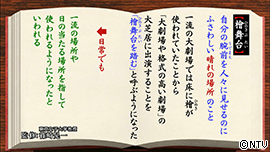 檜舞台
自分の腕前を人々に見せるのに
ふさわしい晴れの場所のこと
一流の大劇場では床に檜が
使われていたことから
「大劇場や格式の高い劇場の
大芝居に出演することを
檜舞台を踏む」と呼ぶようになった
日常でも
一流の場所や
日の当たる場所を指して
使われるようになったと
いわれる
©NTV